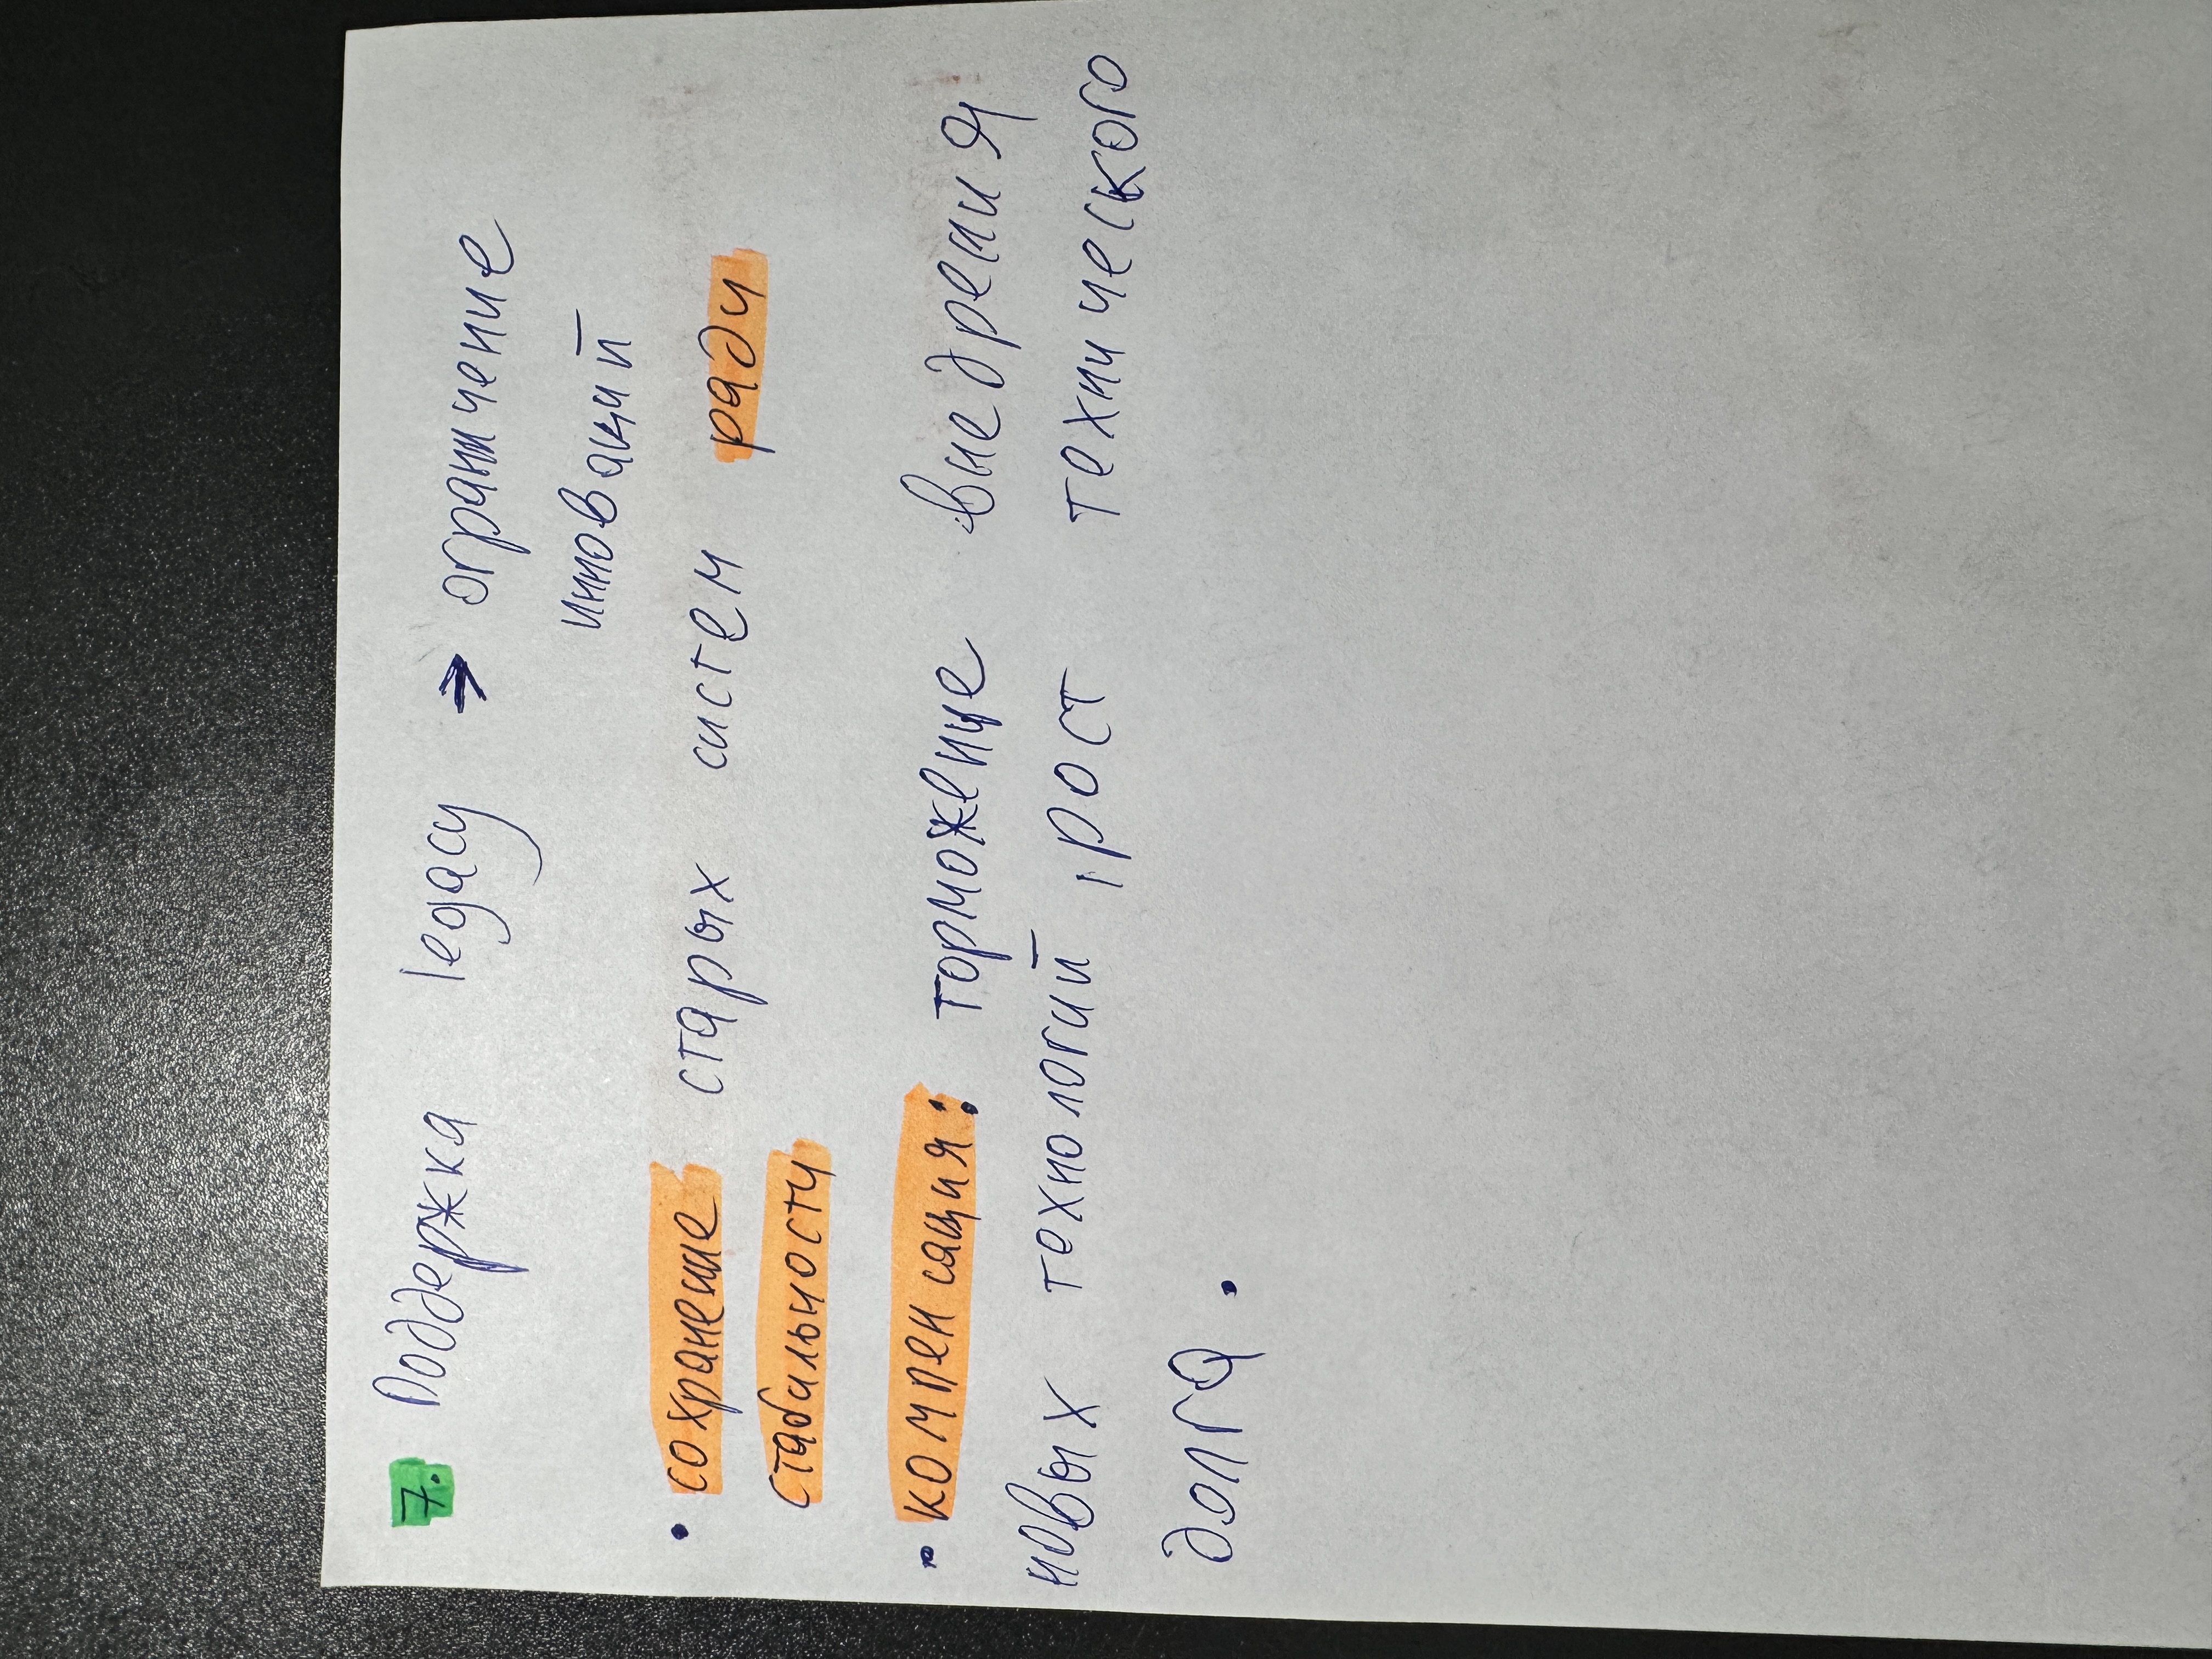 7. Поддержка legacy → ограничение
инноваций
• сохранение старых систем ради
стабильности
• компенсация: торможение внедрения
новых технологий, рост технического
долга.